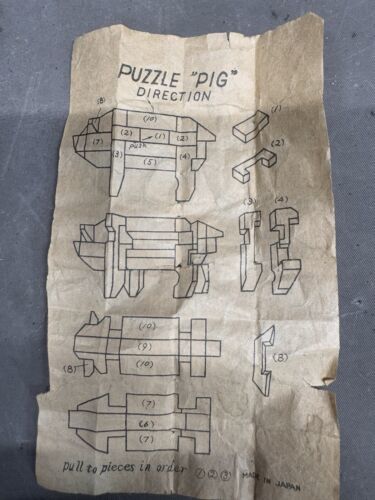 PUZZLE "PIG"
DIRECTION
(8)
(10)
(1)
(7)
(2)
(1)
(2)
push
(2)
(3)
(5)
(4)
(3)
(4)
(10)
(9)
(8)
(10)
(8)
(7)
(6)
(7)
pull to pieces in order ① ② ③ MADE IN JAPAN